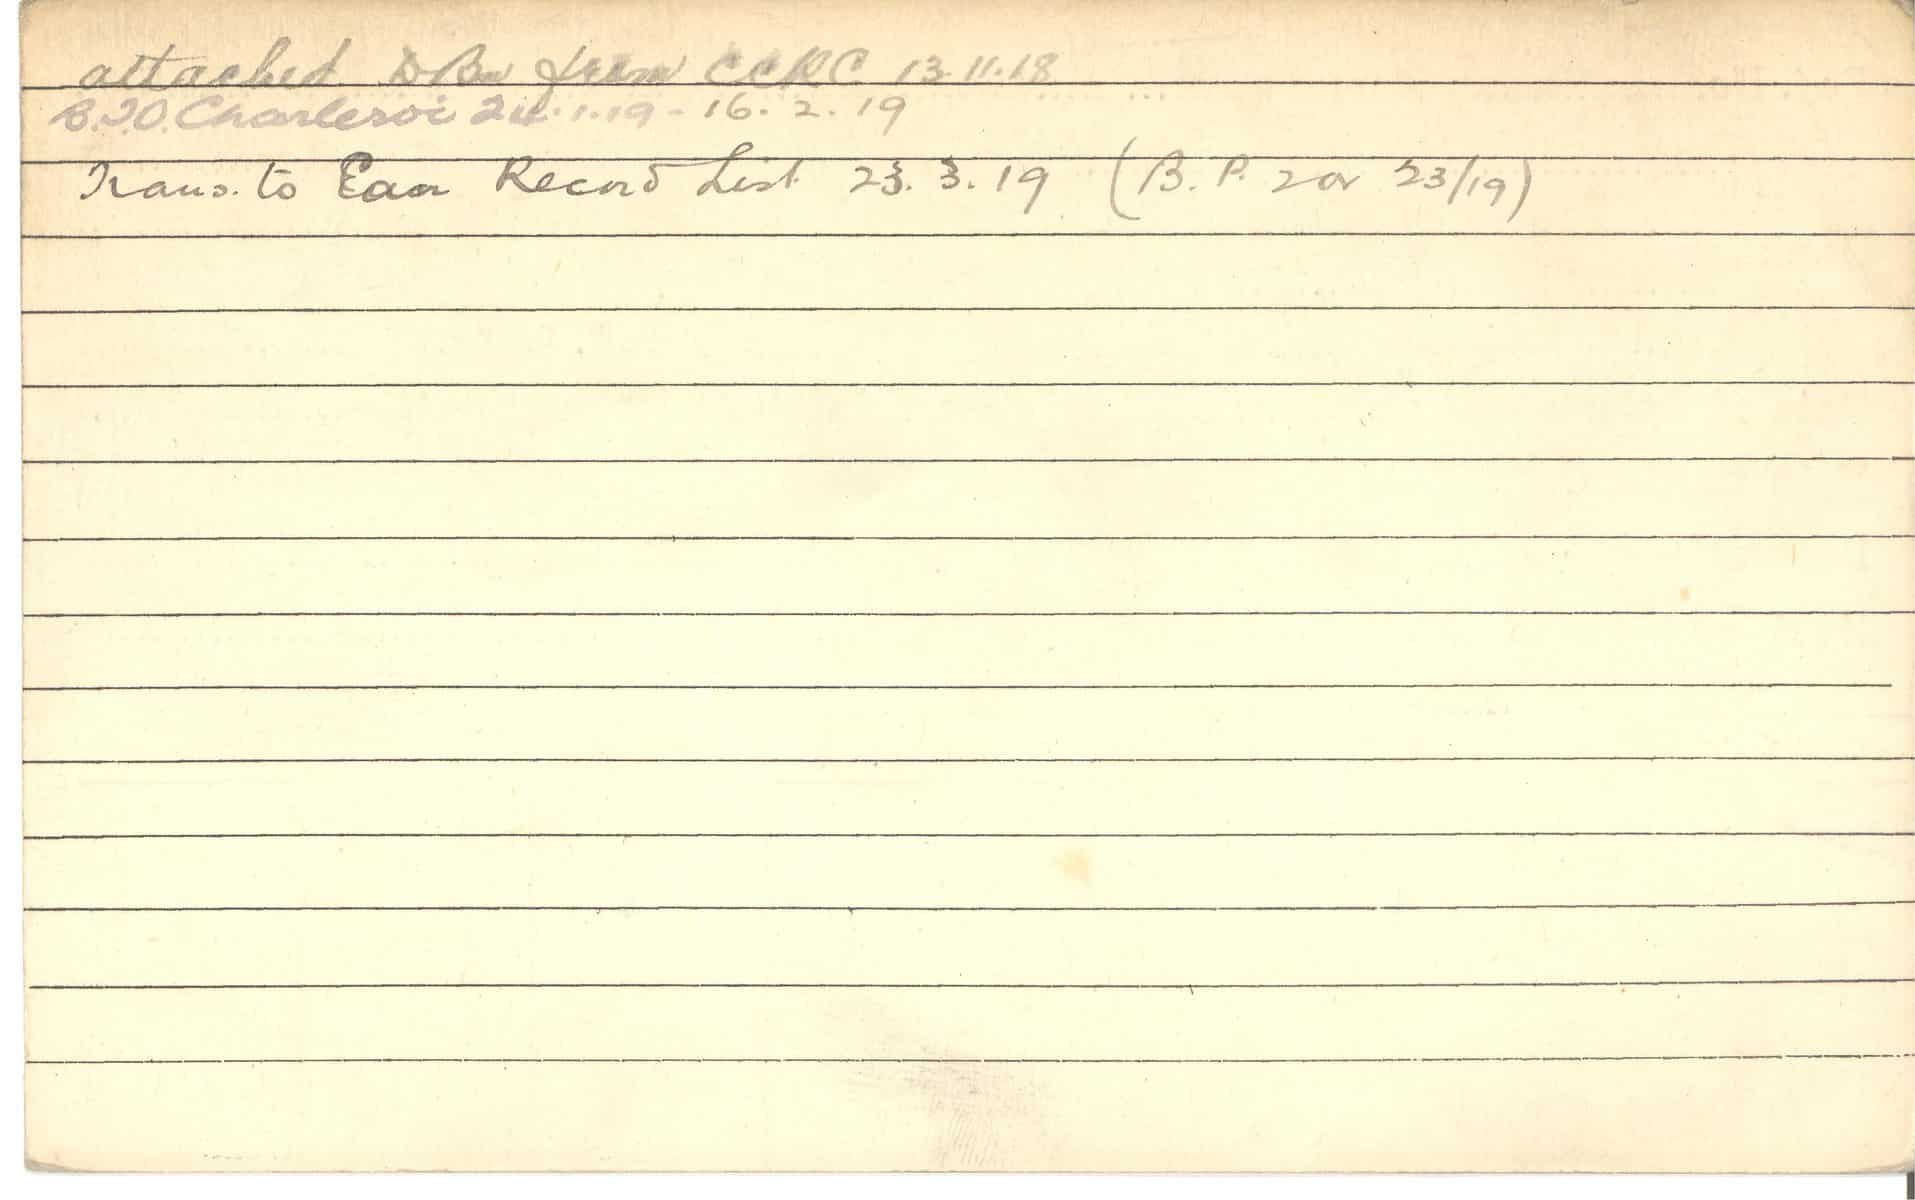 attached D Bn from CCRC 13.11.18
Charleroi 24.1.19 - 16.2.19
Trans. to Ean Record List 23.3.19 (B.P. 2 or 23/19)